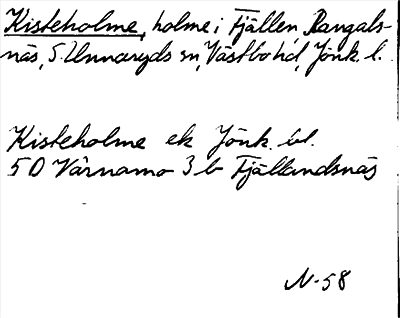 Kisteholme, holme i Fjällen, Rangals-
näs, S. Unnaryds sn, Västbo hd, Jönk. l.
Kisteholme ek Jönk. l.
5D Värnamo 3 b Fjällandsnäs
N-58